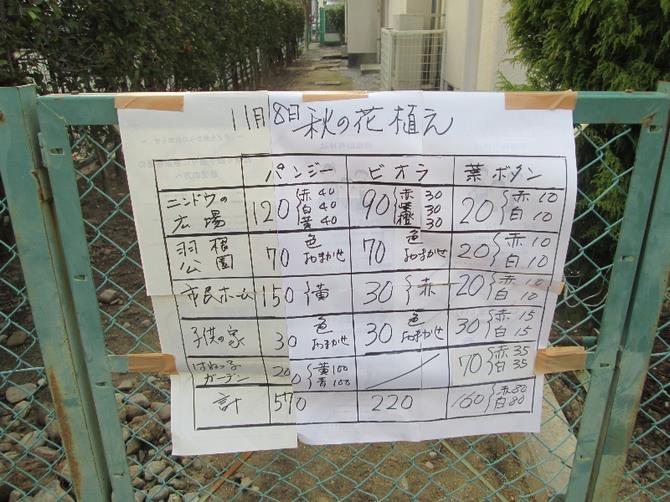 11月8日 秋の花植え
パンジー ビオラ 葉ボタン
ニンドウの広場 120 赤40 白40 黄40 90 赤30 紫30 橙30 20 赤10 白10
羽根公園 70 色おまかせ 70 色おまかせ 20 赤10 白10
市民ホーム 150 黄 30 赤 20 赤10 白10
子供の家 30 色おまかせ 30 色おまかせ 30 赤15 白15
はねっ子ガーデン 200 黄100 青100 70 赤35 白35
計 570 220 160 赤80 白80